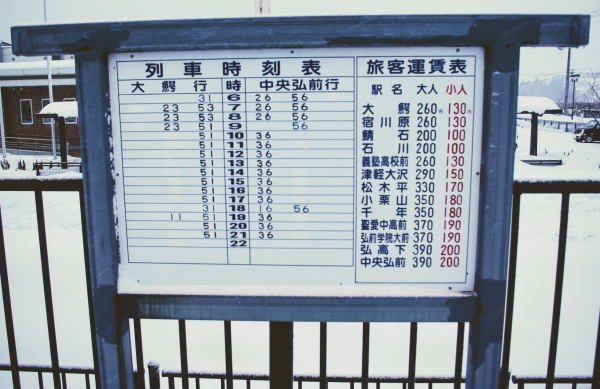 列車時刻表
大鰐行 時 中央弘前行
31 6 26 56
23 53 7 26 56
23 53 8 26 56
23 51 9 56
51 10 36
51 11 36
51 12 36
51 13 36
51 14 36
51 15 36
51 16 36
51 17 36
31 18 16 56
11 51 19 36
51 20 36
51 21 36
22
旅客運賃表
駅名 大人 小人
大鰐 260円 130円
宿川原 260 130
鯖石 200 100
石川 200 100
義塾高校前 260 130
津軽大沢 290 150
松木平 330 170
小栗山 350 180
千年 350 180
聖愛中高前 370 190
弘前学院大前 370 190
弘高下 390 200
中央弘前 390 200